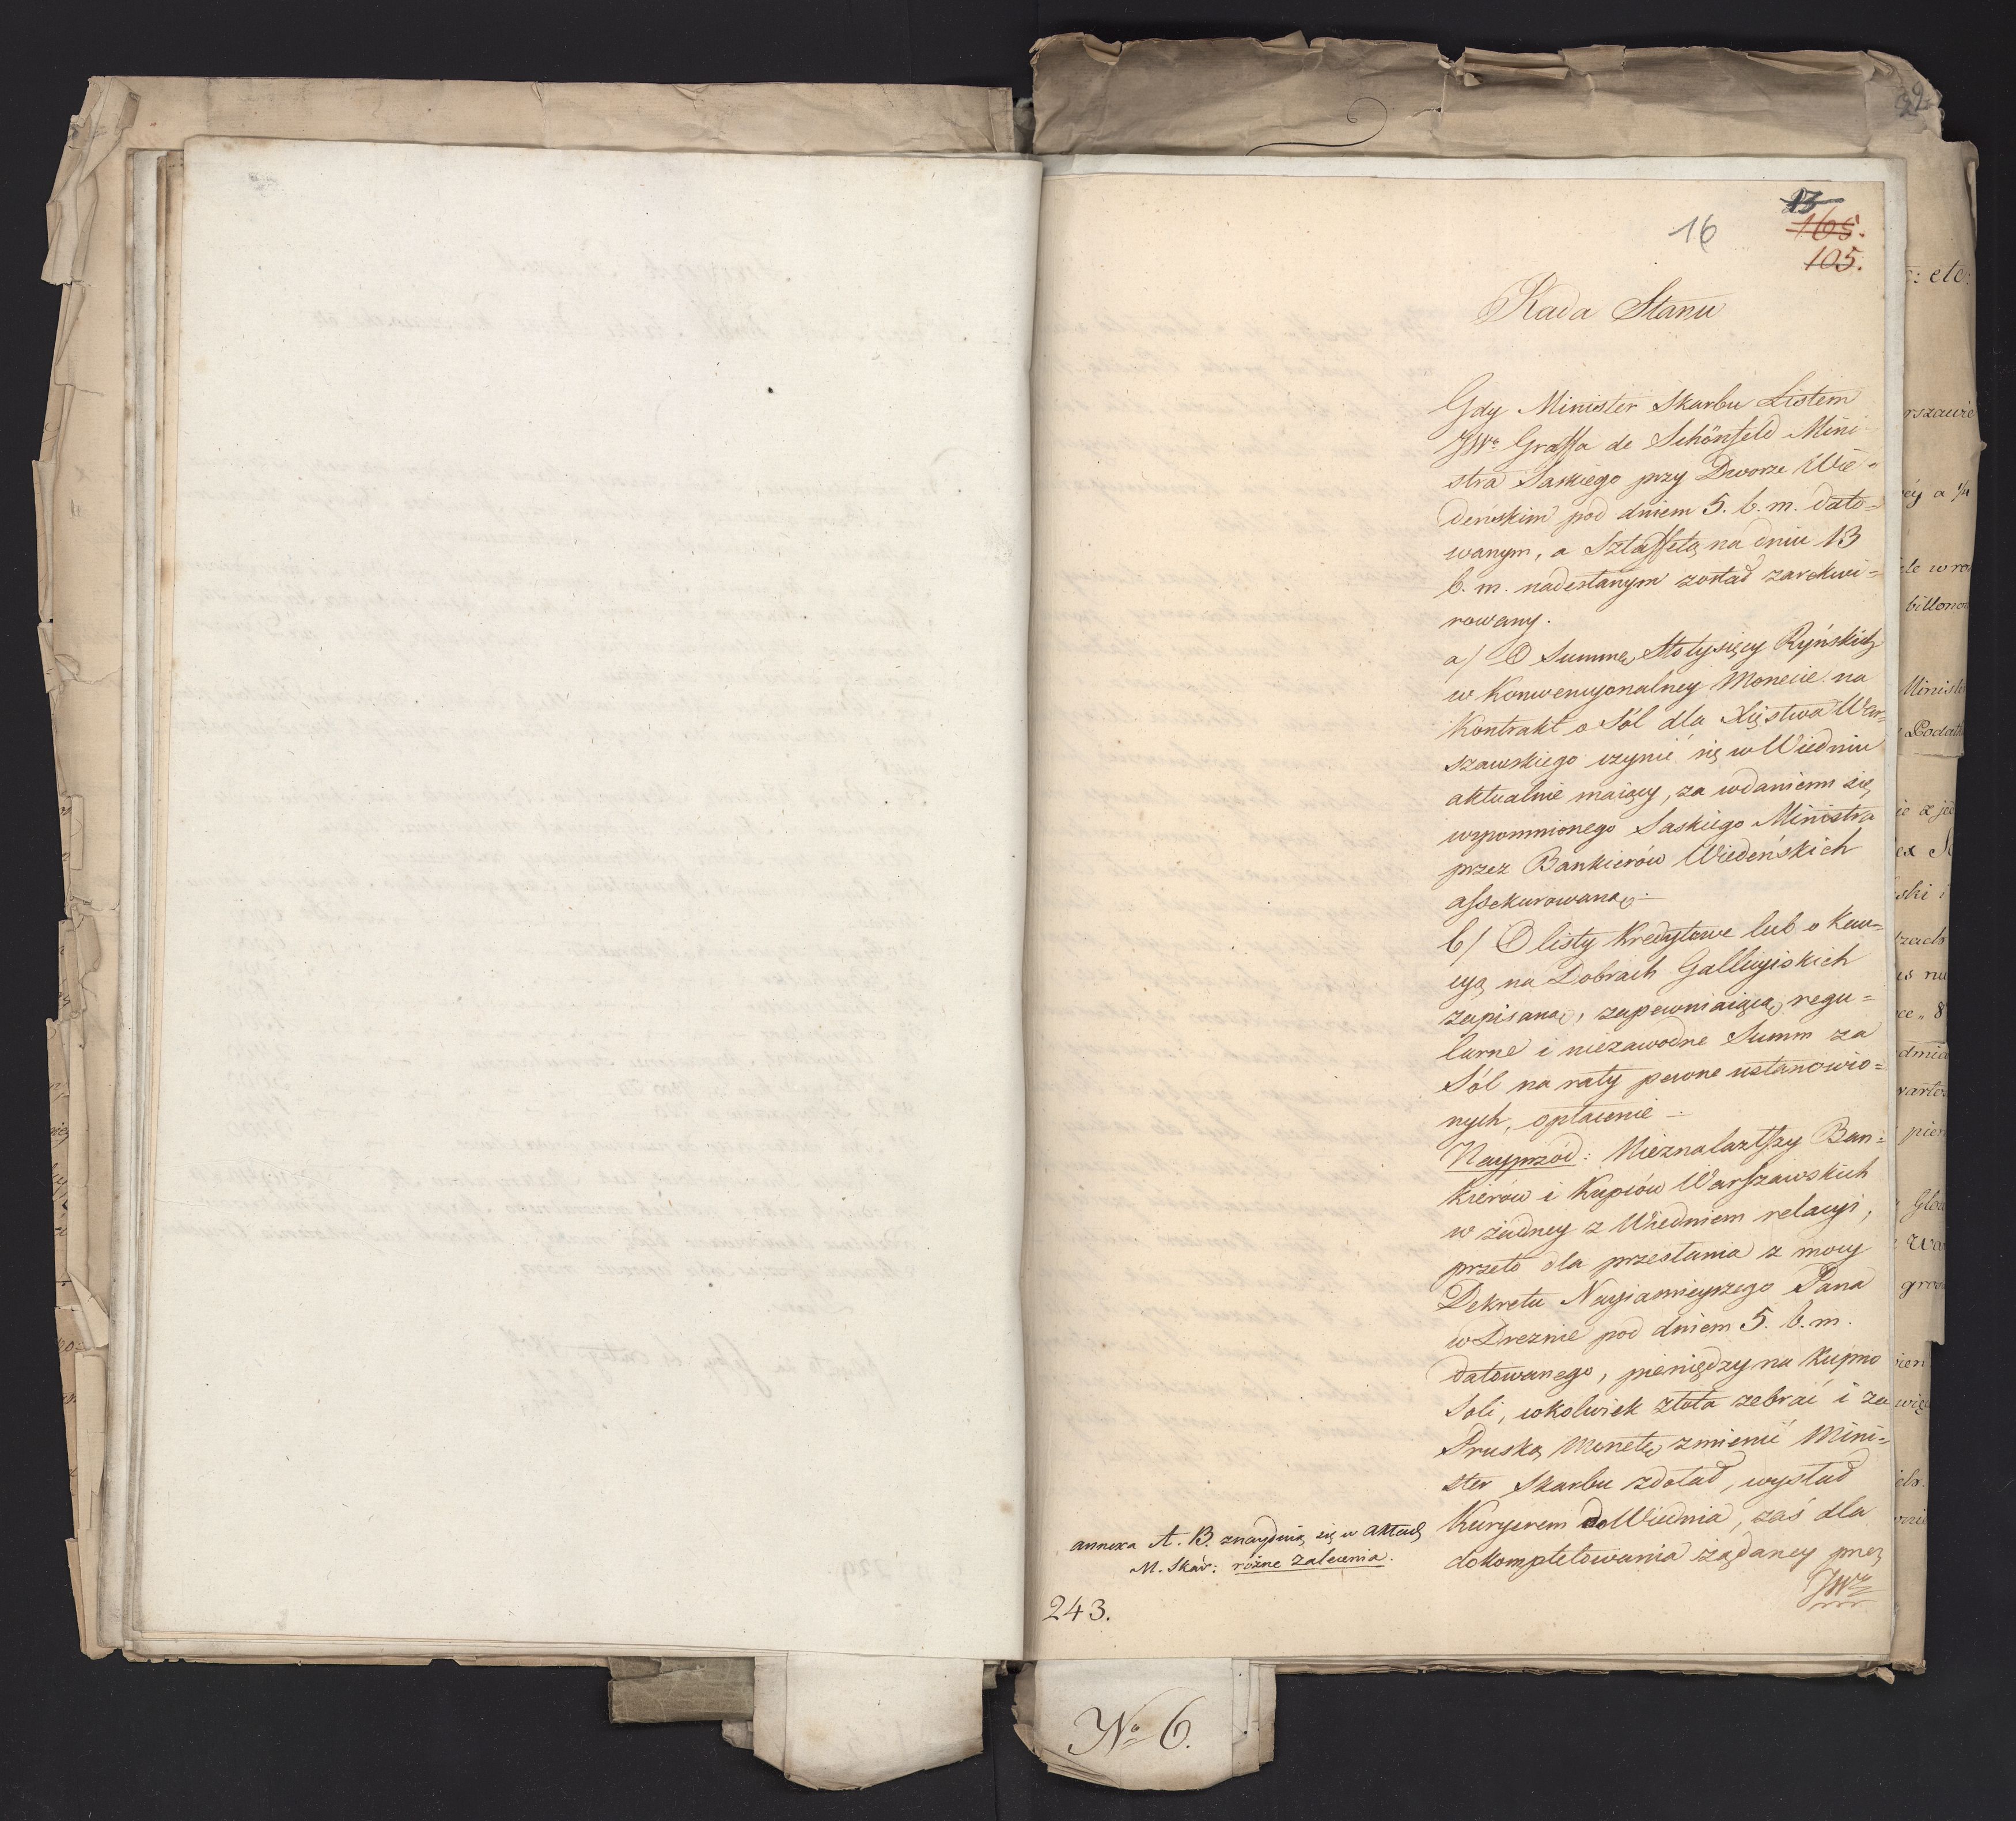 16
13
165.
105.
Rada Stanu
Gdy Minister Skarbu Listem
JWo Graffa de Schönfeld Mini
stra Saskiego przy Dworze Wie=
deńskim pod dniem 5. b. m. dato=
wanym, a Sztaffetą na dniu 13
b. m. nadesłanym został zarekwi=
rowany.
a/ O Summę Stotysięcy Ryńskich
w Konwencyonalney Monecie na
Kontrakt o Sól dla Xięstwa War=
szawskiego czynić się w Wiedniu
aktualnie maiący, za wdaniem się
wspomnionego Saskiego Ministra
przez Bankierów Wiedeńskich
assekurowaną.—
b/ O listy Kredytowe lub o Kau=
cyą na Dobrach Gallicyiskich
zapisaną, zapewniaiącą regu=
larne i niezawodne Summ za
Sól na raty pewne ustanowio=
nych, opłacenie —
Nayprzód: Nieznalazłszy Ban=
kierów i Kupców Warszawskich
w żadney z Wiedniem relacyi,
przeto dla przesłania z mocy
Dekretu Nayiaśnieyszego Pana
w Dreznie pod dniem 5. b. m.
datowanego, pieniędzy na Kupno
Soli, cokolwiek złota zebrać i za
Pruską Monetę zmienić Mini=
ster Skarbu zdołał, wysłał
Kuryerem do Wiednia, zaś dla
dokompletowania żądaney przez
JWo
annexa A. B. znayduią się w aktach
M. Skar: różne zalecenia.
243.
No 6.